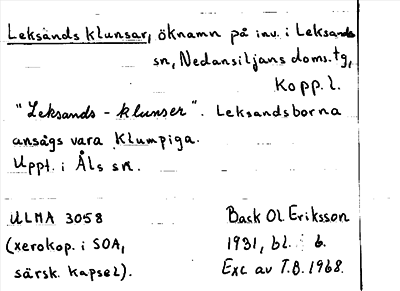 Leksands klunsar, öknamn på inv. i Leksands
sn, Nedansiljans doms.tg,
Kopp. l.
"Leksands - klunser". Leksandsborna
ansågs vara klumpiga.
Uppt. i Åls sn.
ULMA 3058
(xerokop. i SOA,
särsk. kapsel).
Back Ol. Eriksson
1931, bl. 6.
Exc av T.B. 1968.